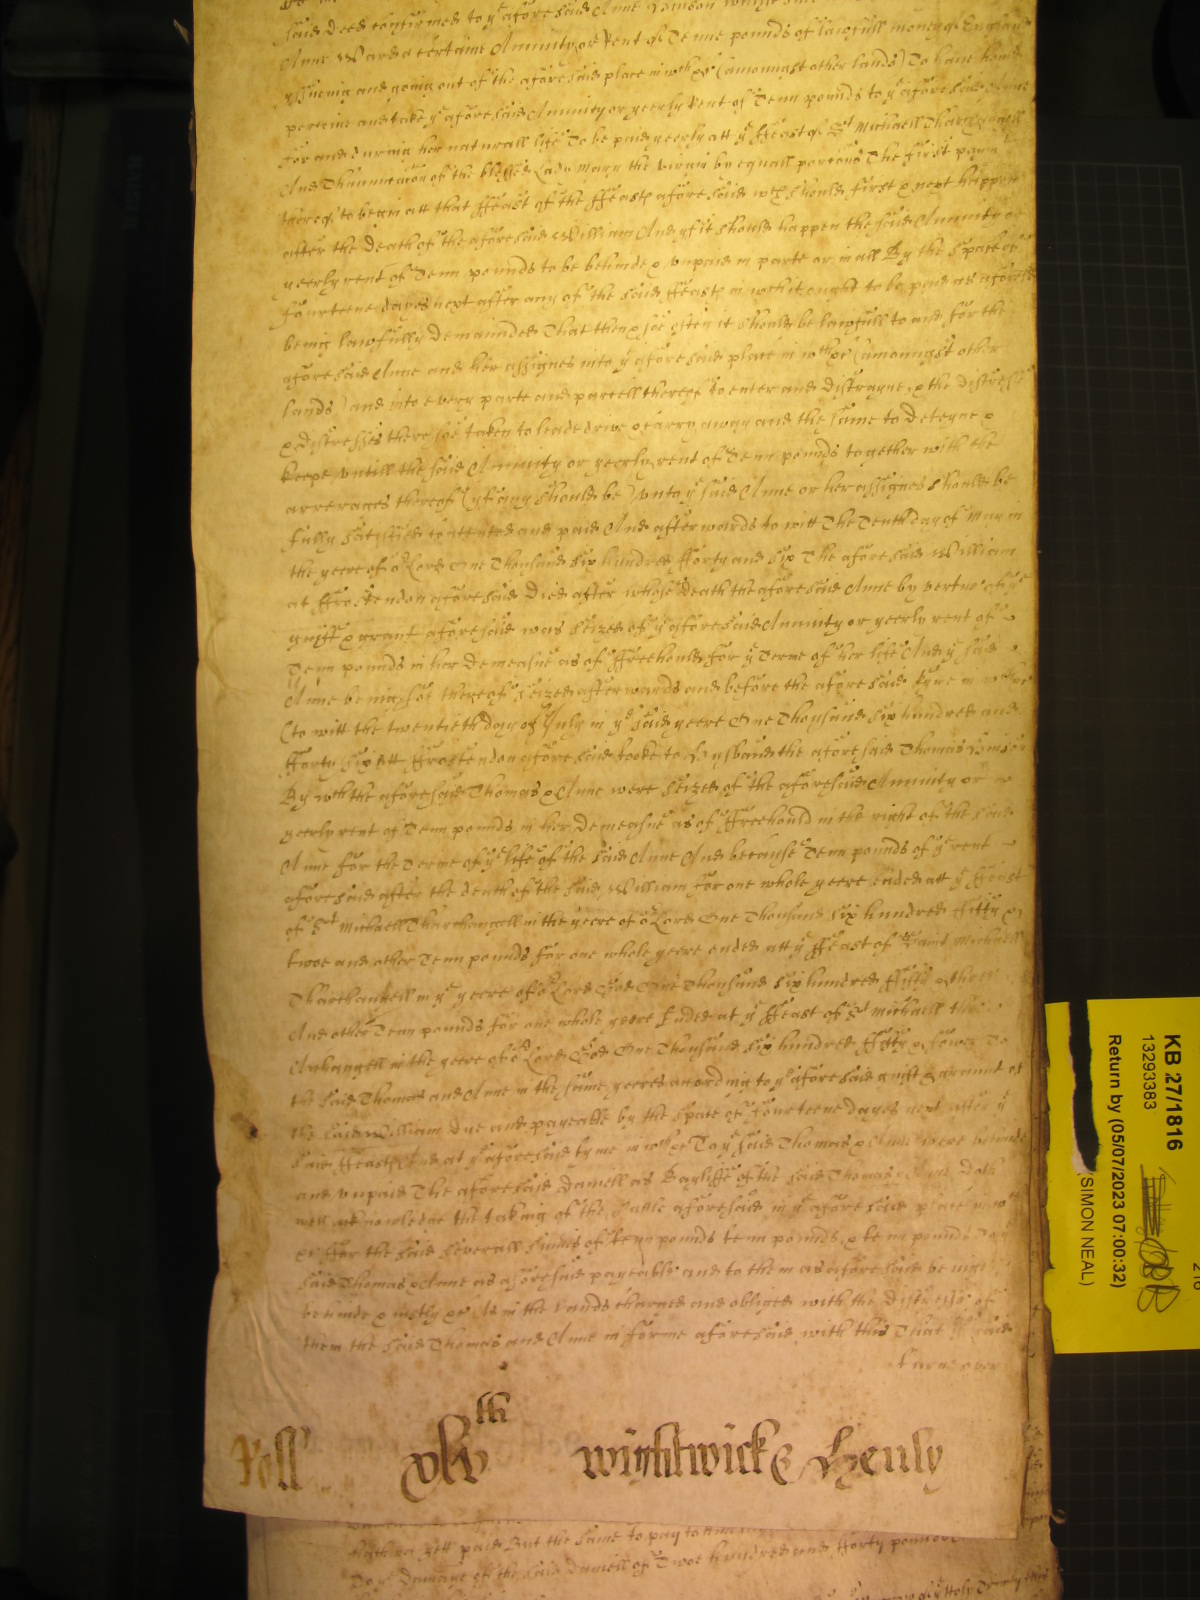 said deed confirmed to ye aforesaid Anne
Anne Ward a certaine Annuity or Rent of Tenne pounds of lawfull money of England
yssueing and going out of the aforesaid place in wch &c (amongst other lands) To have hould
perceive and take ye aforesaid Annuity or yeerly Rent of Tenn pounds to ye aforesaid Anne
for and during her naturall life To be paid yeerly att ye ffeast of St Michaell Tharchangell
And Thannuncacon of the blessed Lady Mary the virgin by equall porcons The first paymt
thereof to begin att that ffeast of the ffeasts aforesaid wch should first & next happen
after the death of the aforesaid William And yf it should happen the said Annuity or
yeerly rent of Tenn pounds to be behinde & vnpaid in parte or in all By the space of
fourteene dayes next after any of the said ffeasts in wch it ought to be paid as aforesd
being lawfully demaunded That then & soe often it should be lawfull to and for the
aforesaid Anne and her assignes into ye aforesaid place in wch &c (amoungst other
lands) and into every parte and parcell thereof to enter and distrayne & the distresse
& distresses there soe taken to leade drive & carry away and the same to deteyne &
keepe vntill the said Annuity or yeerly rent of Tenn pounds together with the
arrerages thereof (yf any should be) vnto ye said Anne or her assignes should be
fully satisfied contented and paid And afterwards to witt The Tenth day of May in
the yeere of or Lord One Thousand six hundred fforty and six The aforesaid William
at ffrostendon aforesaid died after whose death the aforesaid Anne by vertue of ye
guift & grant aforesaid was seized of ye aforesaid Annuity or yeerly rent of
Tenn pounds in her demeasne as of ffreehould for ye Terme of her life And ye said
Anne being soe thereof seized afterwards and before the aforesaid tyme in wch &c
(to witt the twentieth day of July in ye said yeere One Thousand six hundred and
fforty six att ffrostendon aforesaid tooke to Husband the aforesaid Thomas
By wch the aforesaid Thomas & Anne were seized of the aforesaid Annuity or
yeerly rent of Tenn pounds in her demeasne as of ffreehould in the right of the said
Anne for the Terme of ye life of the said Anne And because Tenn pounds of ye rent
aforesaid after the death of the said William for one whole yeere ended att ye ffeast
of St Michaell Tharchangell in the yeere of or Lord One Thousand six hundred ffifty &
twoe and other Tenn pounds for one whole yeere ended att ye ffeast of Saint Michaell
Tharchangell in ye yeere of or Lord God One Thousand six hundred ffifty & three
And other Tenn pounds for one whole yeere Ended at ye ffeast of St Michaell the
Archangell in the yeere of or Lord God One Thousand six hundred ffifty & fower To
the said Thomas and Anne in the same yeeres according to ye aforesaid guift & graunt of
the said William due and payeable by the space of fourteene dayes next after ye
said ffeasts And at ye aforesaid tyme in wch &c To ye said Thomas & Anne were behinde
and vnpaid The aforesaid Daniell as Bayliffe of the said Thomas & Anne doth
well acknowledge the taking of the Cattle aforesaid in ye aforesaid place in wch
&c for the said severall summes of tenn pounds tenn pounds & tenn pounds To ye
said Thomas & Anne as aforesaid payeable and to them as aforesaid being
behinde & iustly &c As in the lands charged and obliged with the distresse of
them the said Thomas and Anne in forme aforesaid with this That said
turne over
Roll xlvth Wightwick & Henly
hath not yett paid But the same to pay to him
Daniell of Twoe hundred and fforty pounds
KB 27/1816
13293383
Return by (05/07/2023 07:00:32)
(SIMON NEAL)